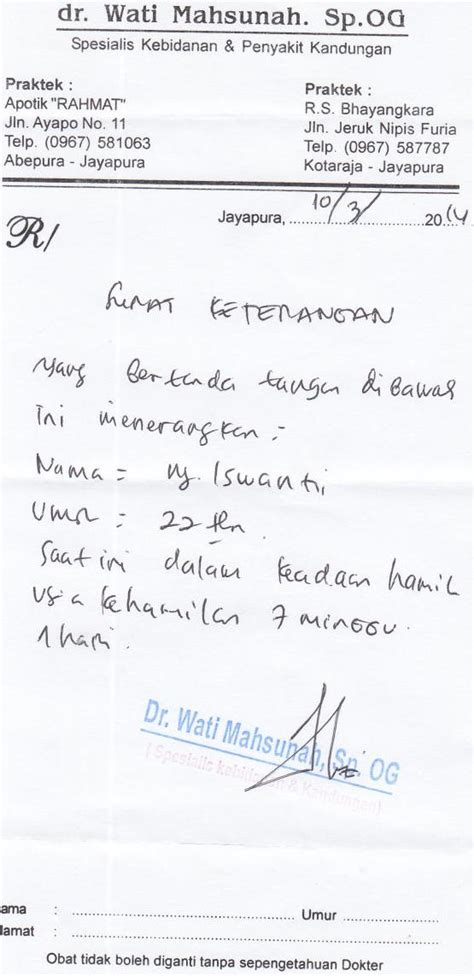 dr. Wati Mahsunah. Sp.OG
Spesialis Kebidanan & Penyakit Kandungan
Praktek :
Apotik "RAHMAT"
Jln. Ayapo No. 11
Telp. (0967) 581063
Abepura - Jayapura
Praktek :
R.S. Bhayangkara
Jln. Jeruk Nipis Furia
Telp. (0967) 587787
Kotaraja - Jayapura
Jayapura, 10/3/ 2014
R/
SURAT KETERANGAN
Yang Bertanda tangan di Bawah
Ini menerangkan :-
Nama = Ny. Iswanti,
Umur = 22 thn
Saat ini dalam keadaan hamil
usia kehamilan 7 minggu
1 hari.
Dr. Wati Mahsunah, Sp. OG
( Spesialis kebidanan & Kandungan)
ama : ........ Umur ........
lamat : ........
Obat tidak boleh diganti tanpa sepengetahuan Dokter